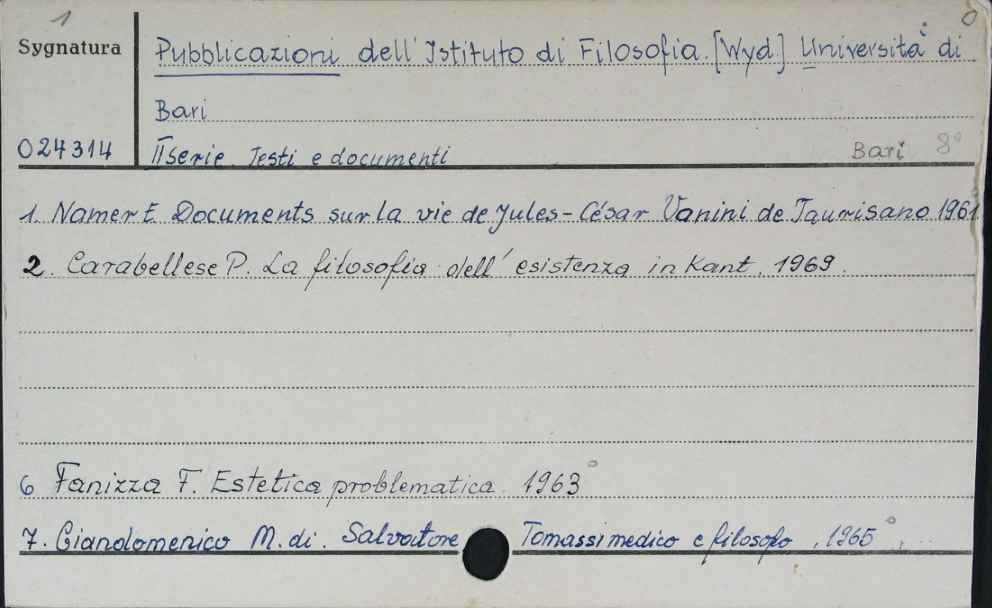 1
Sygnatura Pubblicazioni dell'Istituto di Filosofia. [Wyd] Università di
Bari
024314 II serie Testi e documenti Bari 8°
1. Namer E. Documents sur la vie de Jules-César Vanini de Taurisano 1961
2. Carabellese P. La filosofia dell'esistenza in Kant. 1969.
6 Fanizza F. Estetica problematica. 1963
7. Giandomenico M. di. Salvatore Tomassi medico e filosofo, 1965